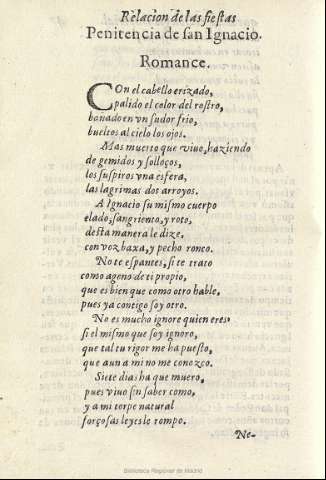 Relacion de las fiestas
Penitencia de san Ignacio.
Romance.
COn el cabello erizado,
palido el color del rostro,
banado en vn sudor frio,
bueltos al cielo los ojos.
Mas muerto que viuo, haziendo
de gemidos y solloços,
los suspiros vna esfera,
las lagrimas dos arroyos.
A Ignacio su mismo cuerpo
elado, sangriento, y roto,
desta manera le dize,
con voz baxa, y pecho ronco.
No te espantes, si te trato
como ageno de ti propio,
que es bien que como otro hable,
pues ya contigo soy otro.
No es mucho ignore quien eres
si el mismo que soy ignoro,
que tal tu rigor me ha puesto,
que aun a mi no me conozco.
Siete dias ha que muero,
pues viuo sin saber como,
y a mi torpe natural
forçosas leyes le rompo.
Ne-
Biblioteca Regional de Madrid